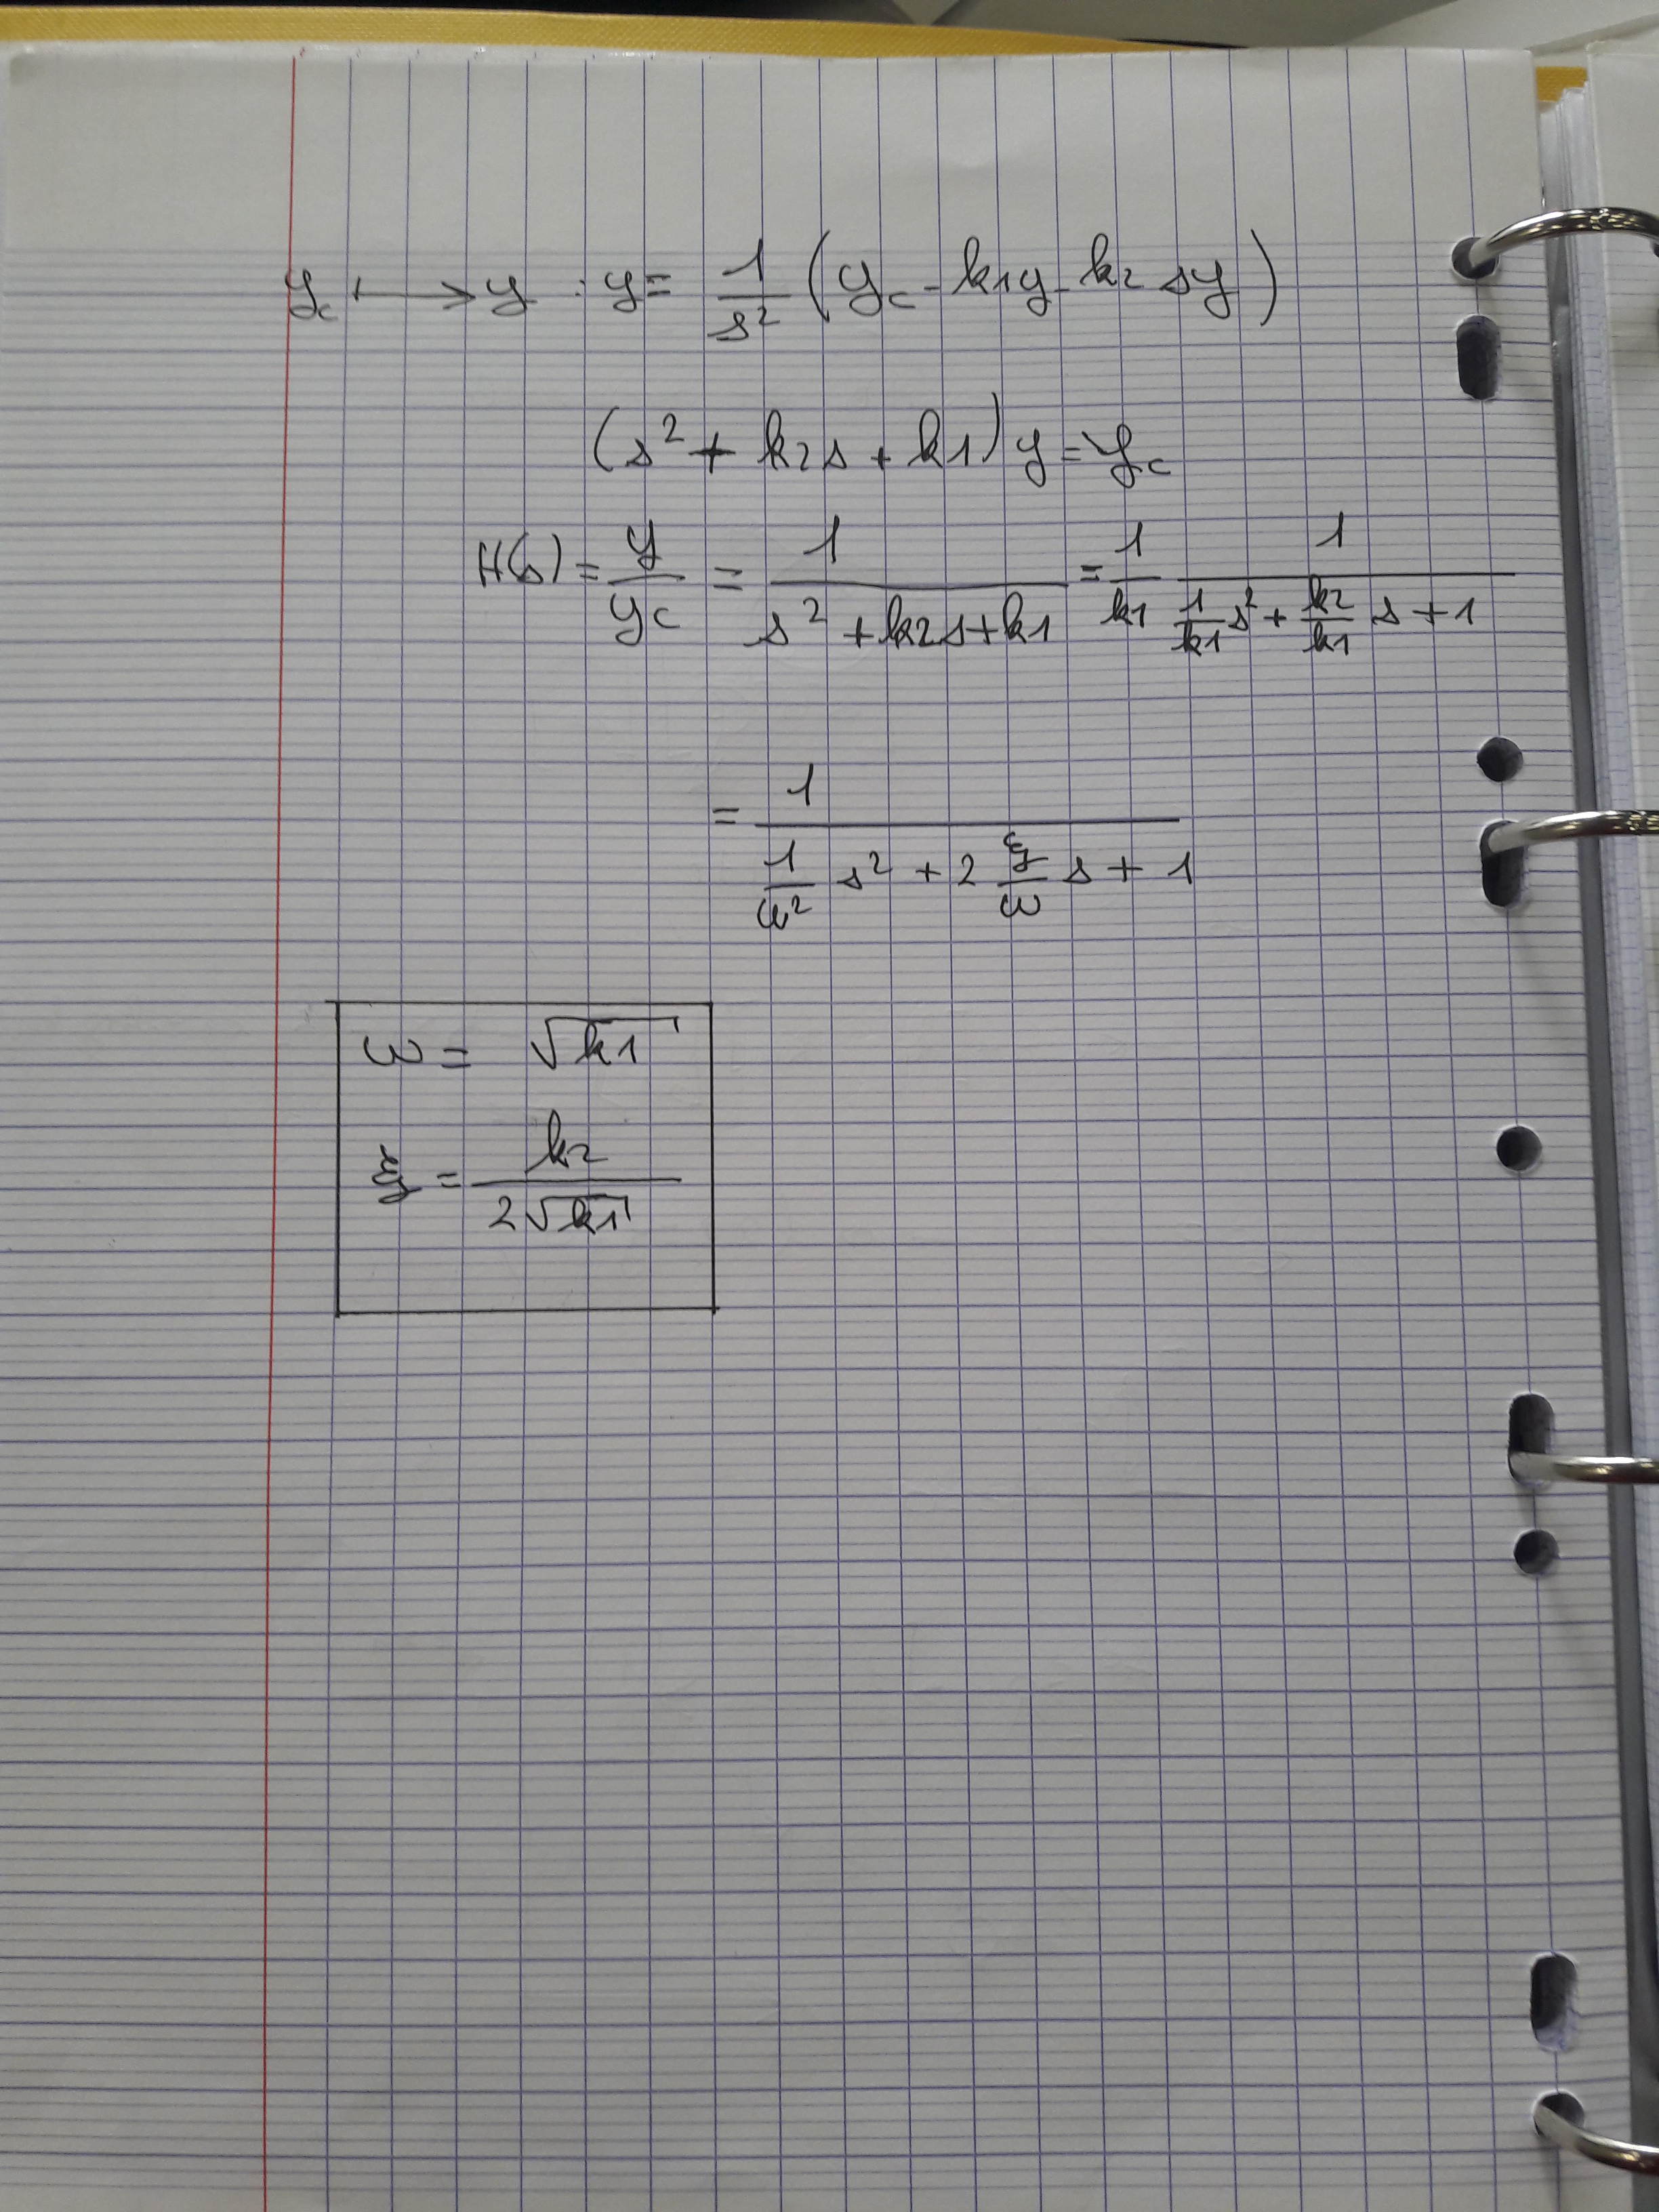 y_c ⟼ y : y = 1/s² (y_c - k1y - k2 sy)
(s² + k2s + k1) y = y_c
H(s) = y/yc = 1/(s² + k2s + k1) = 1/k1 1/(1/k1 s² + k2/k1 s + 1)
= 1/(1/ω² s² + 2 ξ/ω s + 1)
ω = √k1
ξ = k2/(2√k1)